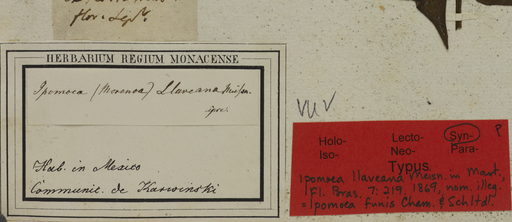 flor. Sept.
HERBARIUM REGIUM MONACENSE
Ipomoea (Morenoa) Llaveana Meisn.
ipse.
Hab. in Mexico
Communic. de Karwinski
Holo- Lecto- Syn- P
Iso- Neo- Para-
Typus
Ipomoea llaveana Meisn. in Mart.,
Fl. Bras. 7: 219. 1869, nom. illeg.
= Ipomoea funis Cham. & Schltdl.